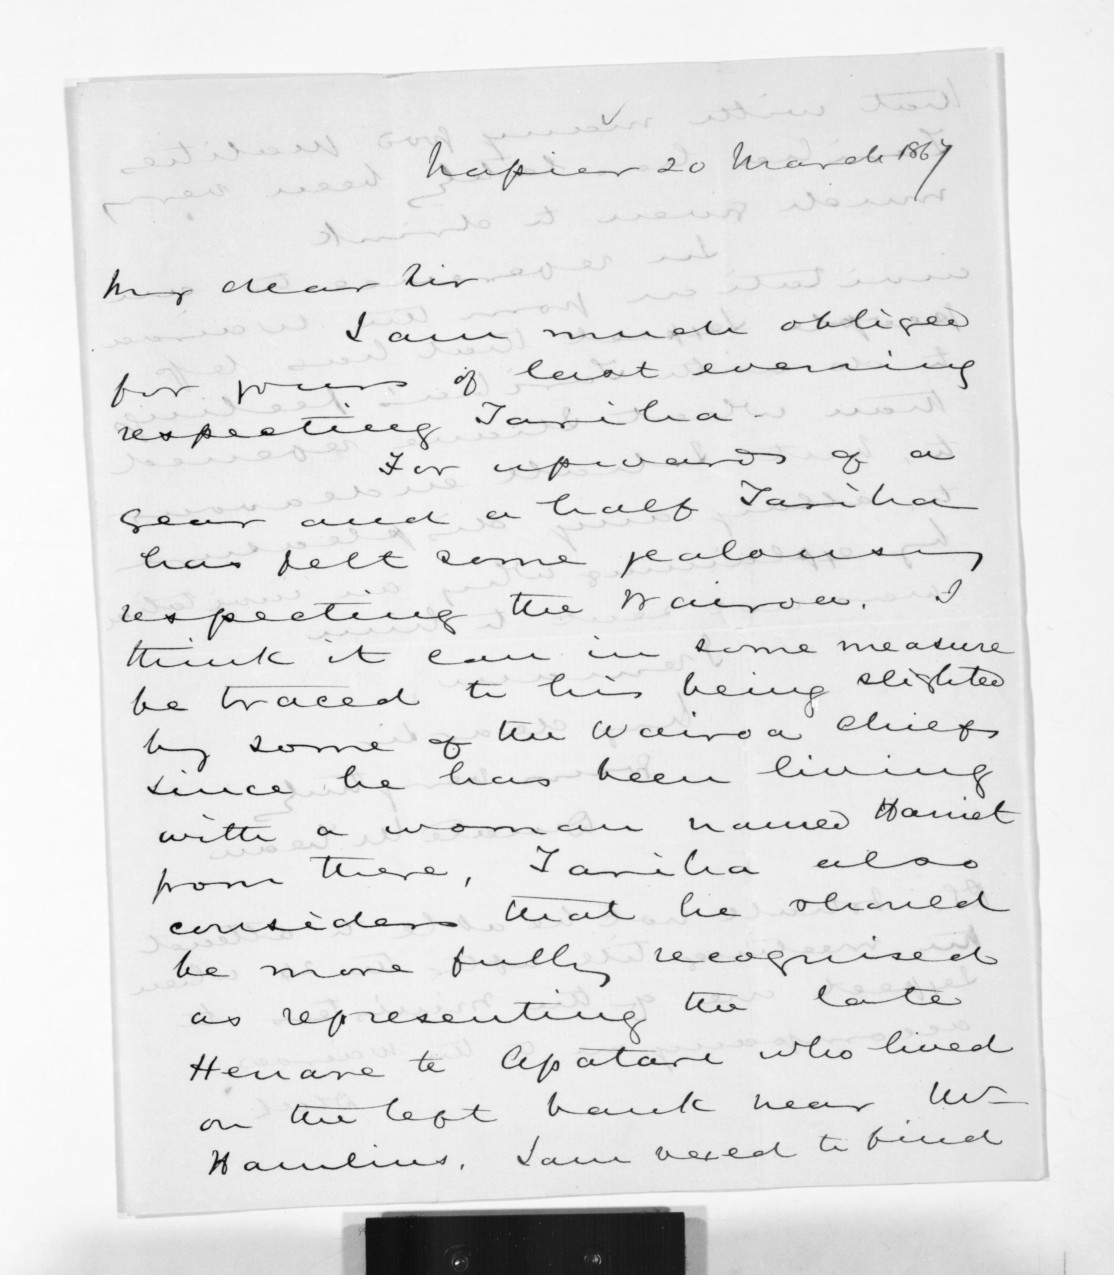 Napier 20 March 1867
My dear Sir
I am much obliged
for yours of last evening
respecting Tariha -
For upwards of a
year and a half Tariha
has felt some jealousy
respecting the Wairoa. I
think it can in some measure
be traced to his being slighted
by some of the Wairoa chiefs
since he has been living
with a woman named Harriet
from there, Tariha also
considers that he should
be more fully recognised
as representing the late
Henare te Apatari who lived
on the left bank near Mr
Hamlins. I am vexed to find